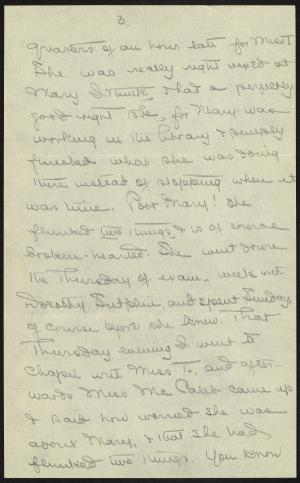 3.
quarters of an hour late for Miss T.
She was really right vexed at
Mary I think that a perfectly
good right to, for Mary was
working in the library & simply
finished what she was doing
there instead of stopping when it
was time. Poor Mary! She
flunked two things, & is of course
broken-hearted. She went down
the Thursday of exam. week with
Dorothy Sutphin, and spent Sunday,
of course before she knew. That
Thursday evening I went to
Chapel with Miss T., and after-
wards Miss McCaleb came up
& said how worried she was
about Mary, & that she had
flunked two things. You know